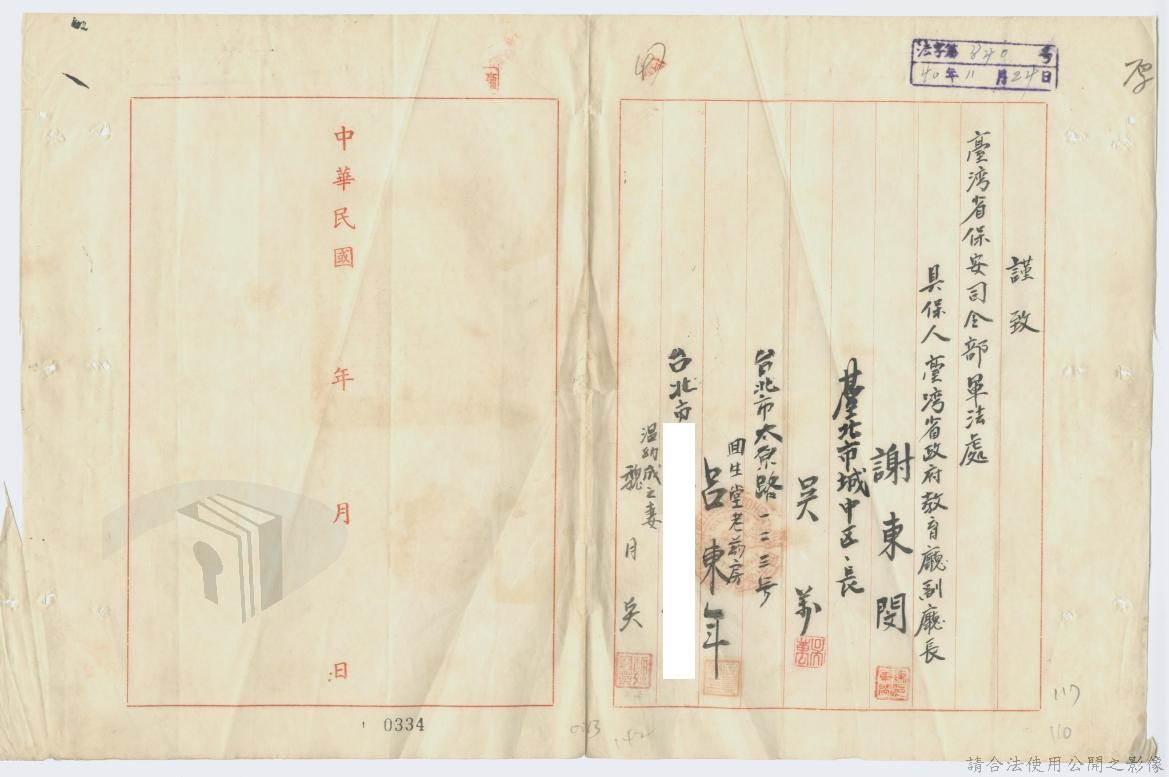 法字第340号
40年11月24日
謹致
臺湾省保安司令部軍法處
具保人臺湾省政府教育廳副廳長
謝東閔
臺北市城中区、長
吴萬
台北市太原路一二三号
回生堂老葯房
呂東年
台北市
温幼成之妻
魏月吴
中華民國 年 月 日
0334
117
110
請合法使用公開之影像